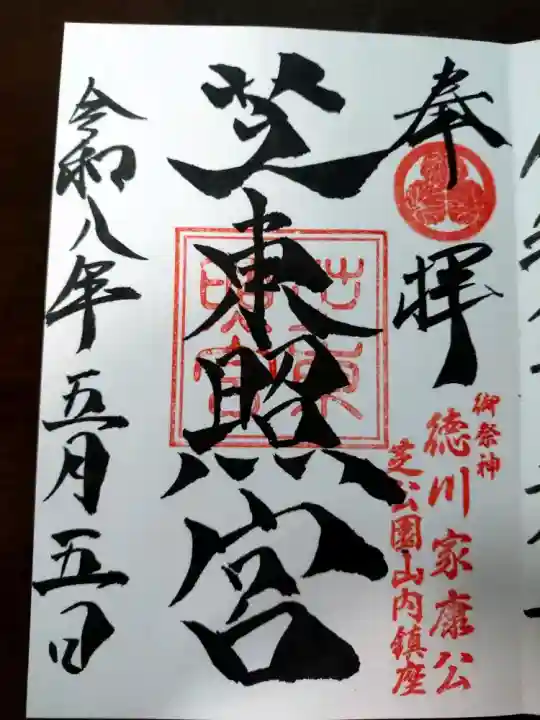 奉拝
御祭神
徳川家康公
芝公園山内鎮座
芝東照宮
芝東照宮
令和八年五月五日